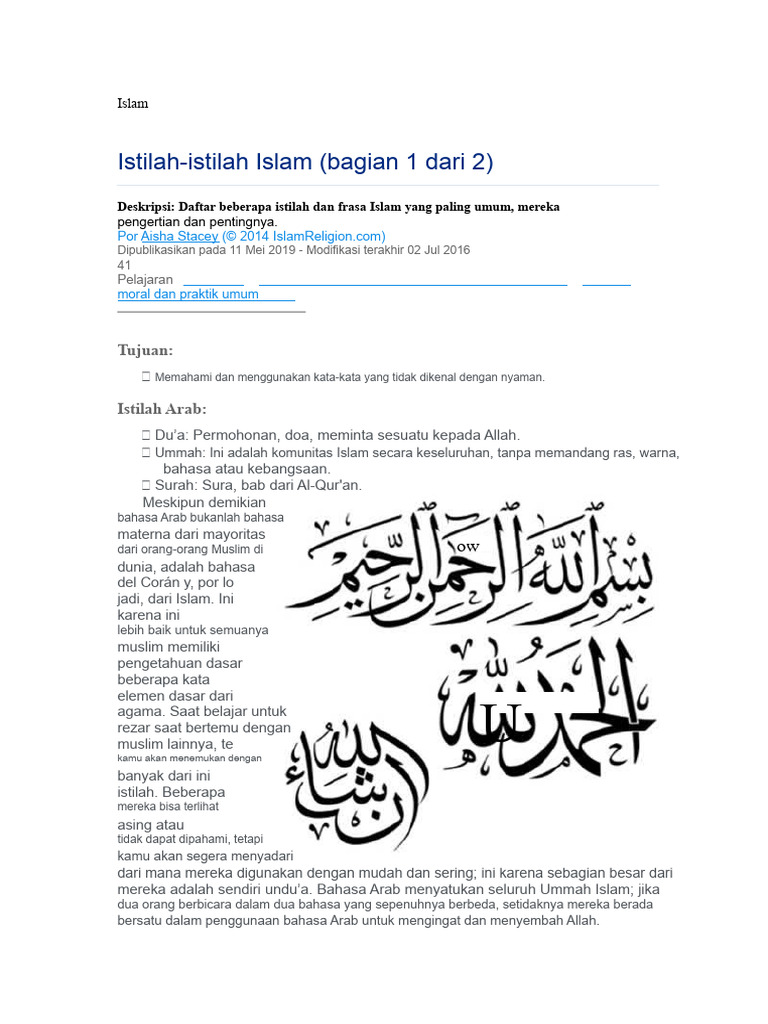 Islam
Istilah-istilah Islam (bagian 1 dari 2)
Deskripsi: Daftar beberapa istilah dan frasa Islam yang paling umum, mereka
pengertian dan pentingnya.
Por Aisha Stacey (© 2014 IslamReligion.com)
Dipublikasikan pada 11 Mei 2019 - Modifikasi terakhir 02 Jul 2016
41
Pelajaran
moral dan praktik umum
Tujuan:
Memahami dan menggunakan kata-kata yang tidak dikenal dengan nyaman.
Istilah Arab:
Du‘a: Permohonan, doa, meminta sesuatu kepada Allah.
Ummah: Ini adalah komunitas Islam secara keseluruhan, tanpa memandang ras, warna,
bahasa atau kebangsaan.
Surah: Sura, bab dari Al-Qur'an.
Meskipun demikian
bahasa Arab bukanlah bahasa
materna dari mayoritas
dari orang-orang Muslim di
dunia, adalah bahasa
del Corán y, por lo
jadi, dari Islam. Ini
karena ini
lebih baik untuk semuanya
muslim memiliki
pengetahuan dasar
beberapa kata
elemen dasar dari
agama. Saat belajar untuk
rezar saat bertemu dengan
muslim lainnya, te
kamu akan menemukan dengan
banyak dari ini
istilah. Beberapa
mereka bisa terlihat
asing atau
tidak dapat dipahami, tetapi
kamu akan segera menyadari
بسم الله الرحمن الرحيم
ow
الحمد لله
U
إن شاء الله
dari mana mereka digunakan dengan mudah dan sering; ini karena sebagian besar dari
mereka adalah sendiri undu‘a. Bahasa Arab menyatukan seluruh Ummah Islam; jika
dua orang berbicara dalam dua bahasa yang sepenuhnya berbeda, setidaknya mereka berada
bersatu dalam penggunaan bahasa Arab untuk mengingat dan menyembah Allah.